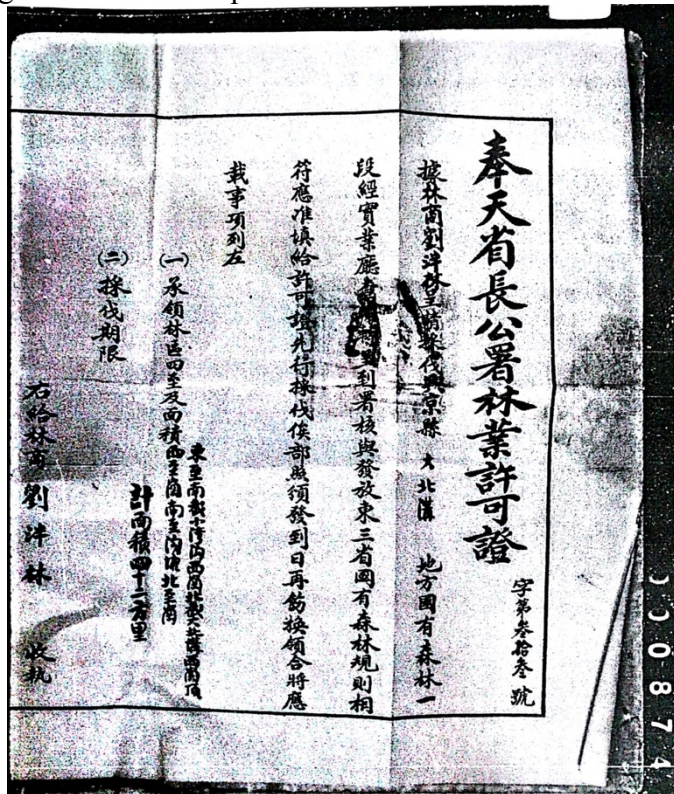 奉天省長公署林業許可證
字第叁拾叁號
據林商劉泮林呈請採伐興京縣 大北溝 地方國有森林一
段經實業廳 到署核與發放東三省國有森林規則相
符應准填給許可證先行採伐俟部照頒發到日再飭換領合將應
載事項列左
(一) 承領林區四至及面積
東至南截小溝內西崗北截大北溝西崗頂
西至崗南至溝 北至崗
計面積四十二方里
(二) 採伐期限
右給林商劉泮林 收執
00874